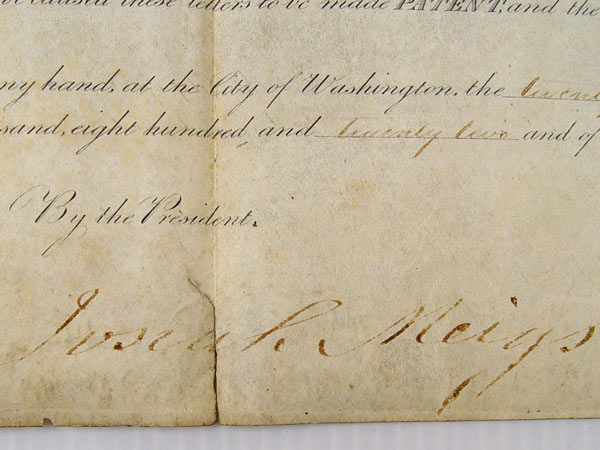 caused these letters to be made PATENT, and the
my hand, at the City of Washington, the
sand, eight hundred and twenty two and of
By the President.
Josiah Meigs